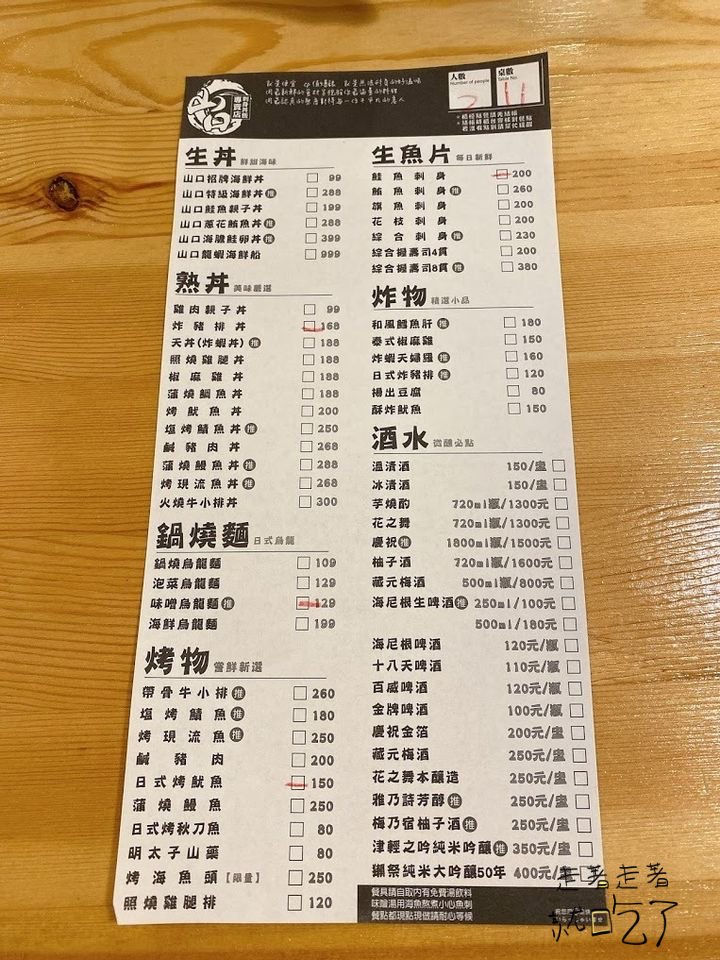 刺身丼飯
專賣店
人數
Number of people
桌數
Table No.
11
生丼 鮮甜海味
山口招牌海鮮丼 99
山口特級海鮮丼推 288
山口鮭魚親子丼 199
山口蔥花鮪魚丼推 288
山口海膽鮭卵丼推 399
山口龍蝦海鮮船 999
熟丼 美味嚴選
雞肉親子丼 99
炸豬排丼 168
天丼(炸蝦丼)推 188
照燒雞腿丼 188
椒麻雞丼 188
蒲燒鯛魚丼 188
烤魷魚丼 200
塩烤鯖魚丼推 250
鹹豬肉丼 268
蒲燒鰻魚丼推 288
烤現流魚丼推 268
火燒牛小排丼 300
鍋燒麵 日式烏龍
鍋燒烏龍麵 109
泡菜烏龍麵 129
味噌烏龍麵推 129
海鮮烏龍麵 199
烤物 嘗鮮新選
帶骨牛小排推 260
塩烤鯖魚推 180
烤現流魚推 250
鹹豬肉 200
日式烤魷魚 150
蒲燒鰻魚 250
日式烤秋刀魚 80
明太子山藥 80
烤海魚頭【限量】 250
照燒雞腿排 120
生魚片 每日新鮮
鮭魚刺身 200
鮪魚刺身推 260
旗魚刺身 200
花枝刺身 200
綜合刺身推 230
綜合握壽司4貫 200
綜合握壽司8貫推 380
炸物 精選小品
和風鱈魚肝推 180
泰式椒麻雞 150
炸蝦天婦羅推 160
日式炸豬排推 120
揚出豆腐 80
酥炸魷魚 150
酒水 微醺必點
溫清酒 150/壺
冰清酒 150/壺
芋燒酌 720ml瓶/1300元
花之舞 720ml瓶/1300元
慶祝推 1800ml瓶/1500元
柚子酒 720ml瓶/1600元
藏元梅酒 500ml瓶/800元
海尼根生啤酒推 250ml/100元
500ml/180元
海尼根啤酒 120元/瓶
十八天啤酒 110元/瓶
百威啤酒 120元/瓶
金牌啤酒 100元/瓶
慶祝金箔 200元/壺
藏元梅酒 250元/壺
花之舞本釀造 250元/壺
雅乃詩芳醇推 250元/壺
梅乃宿柚子酒推 250元/壺
津輕之吟純米吟釀推 350元/壺
獺祭純米大吟釀50年 400元/
餐具請自取內有免費湯飲料
味噌湯用海魚熬煮小心魚刺
餐點都現點現做請耐心等候
走著走著
就口吃了